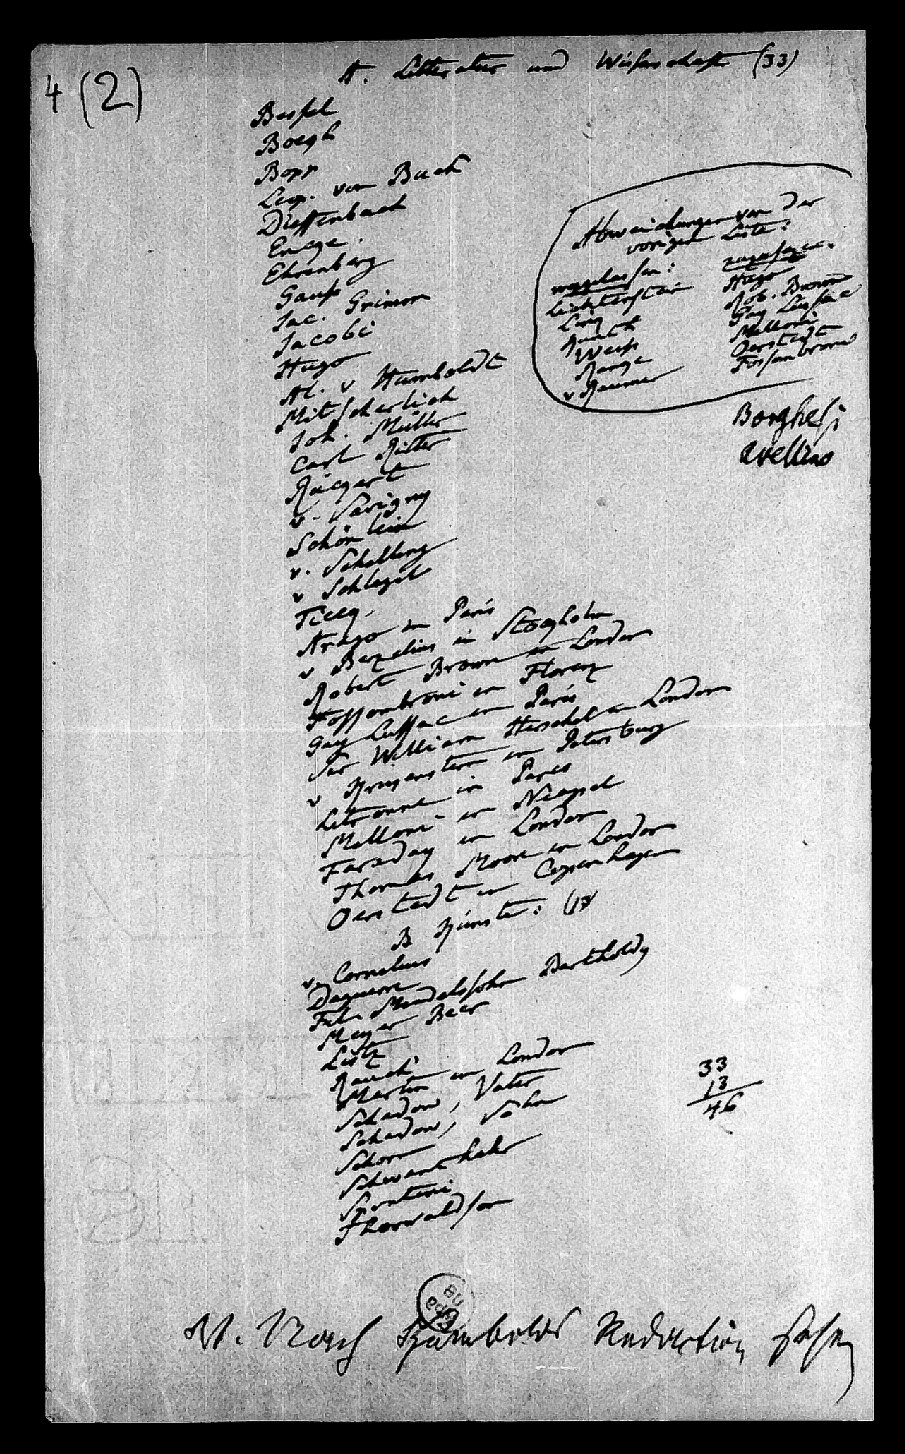 4 (2)
A. Litteratur und Wissenschaft (33)
Bessel
Boegh
Bopp
Leop. von Buch
Dieffenbach
Encge.
Ehrenberg
Gauss
Jac. Grimm
Jacobi
Hugo
Al. v Humboldt
Mitscherlich
Joh. Müller
Carl Ritter
Rücgert
v. Savigny
Schönlein
v. Schelling
v Schlegel
Tiecg.
Arago in Paris
v Berzelius in Stocgholm
Robert Brown in London
Fossombroni in Florenz
Gay Lussac in Paris
Sir William Herschel in London
v Krusenstern in Petersburg
Letronne in Paris
Melloni in Neapel
Faraday in London
Thomas Moore in London
Oerstedt in Copenhagen
B Künste: (13
v. Cornelius
Daguerre
Fel. Mendelssohn Bartholdy
Meyer Beer
Listz
Rauch
Martin in London
Schadow, Vater
Schadow, Sohn
Schnorr
Schwanthaler
Spontini
Thorwaldson
Abweichungen von der
vorigen Liste:
weggelassen:
Lichtenstein
Ling
Kunth
Weiss
Range
v Raumer
zugesezt:
Hugo
Rob. Brown
Gay Lussac
Melloni
Oerstedt
Fossombroni
Borghesi
Avellino
33
13
46
N. Nach Humbolds Redaction